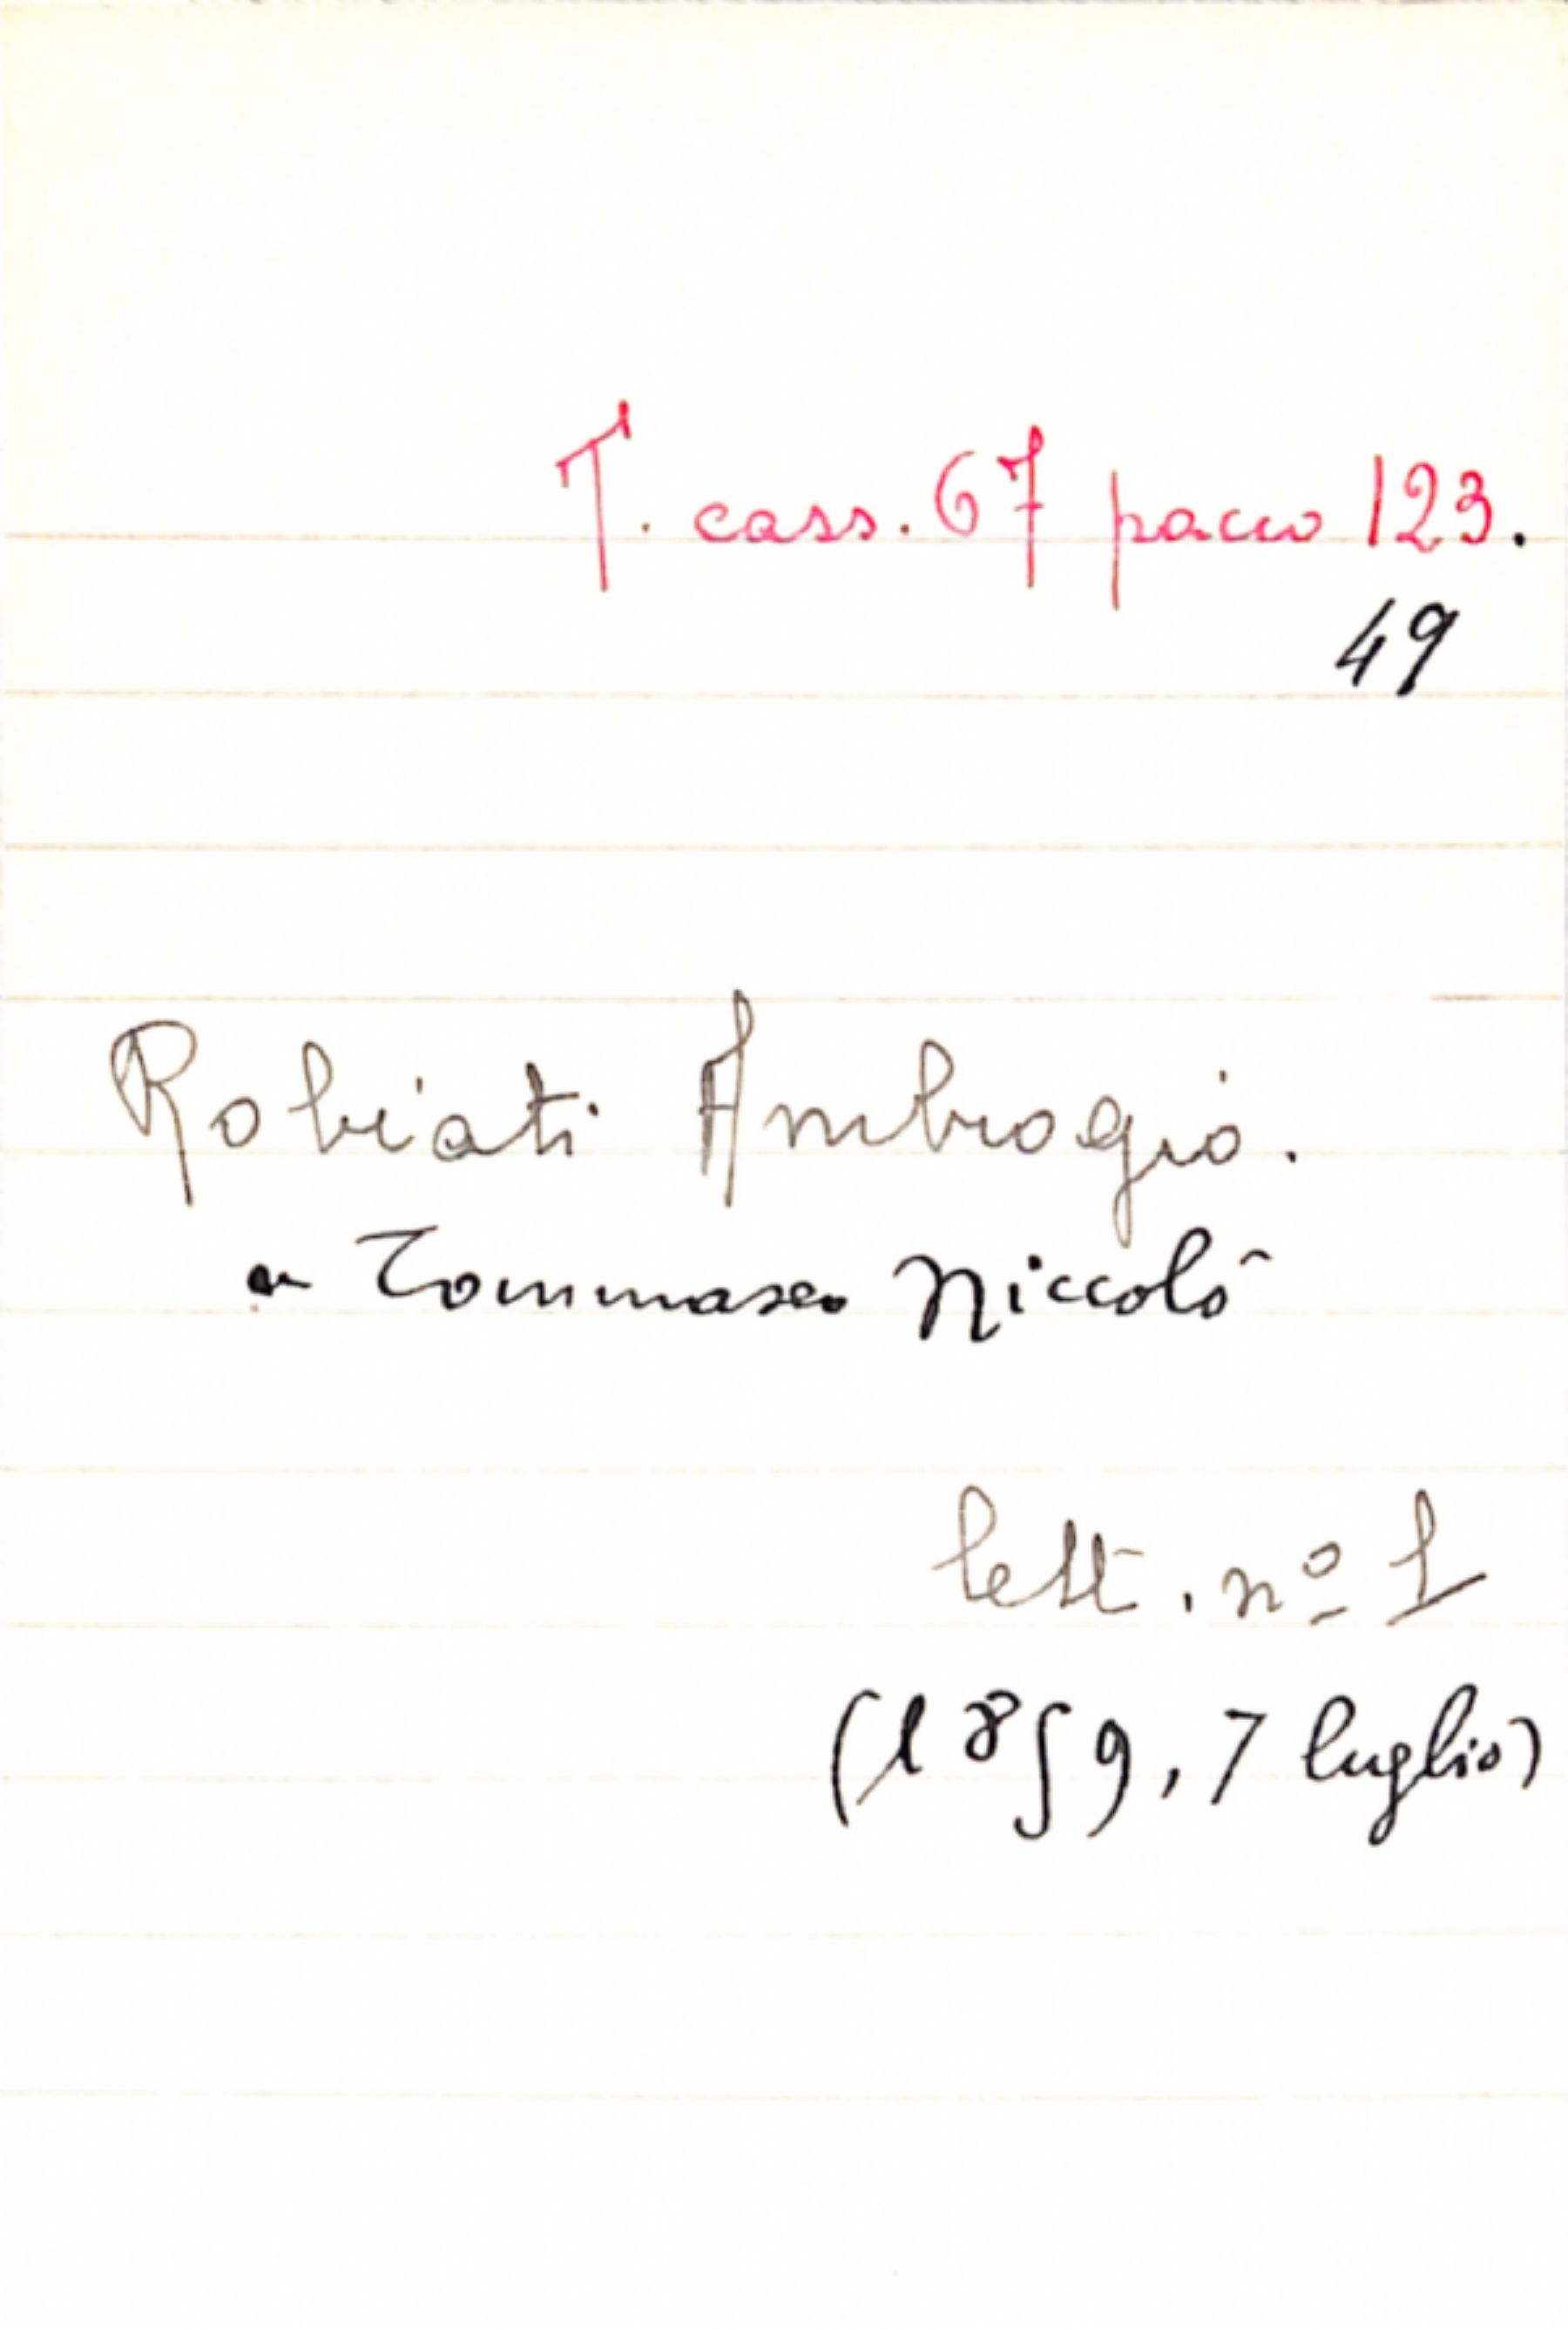 T. cass. 67 pacco 123.
49
Robiati Ambrogio.
a Tommaseo Niccolò
lett. nº 1
(1859, 7 luglio)